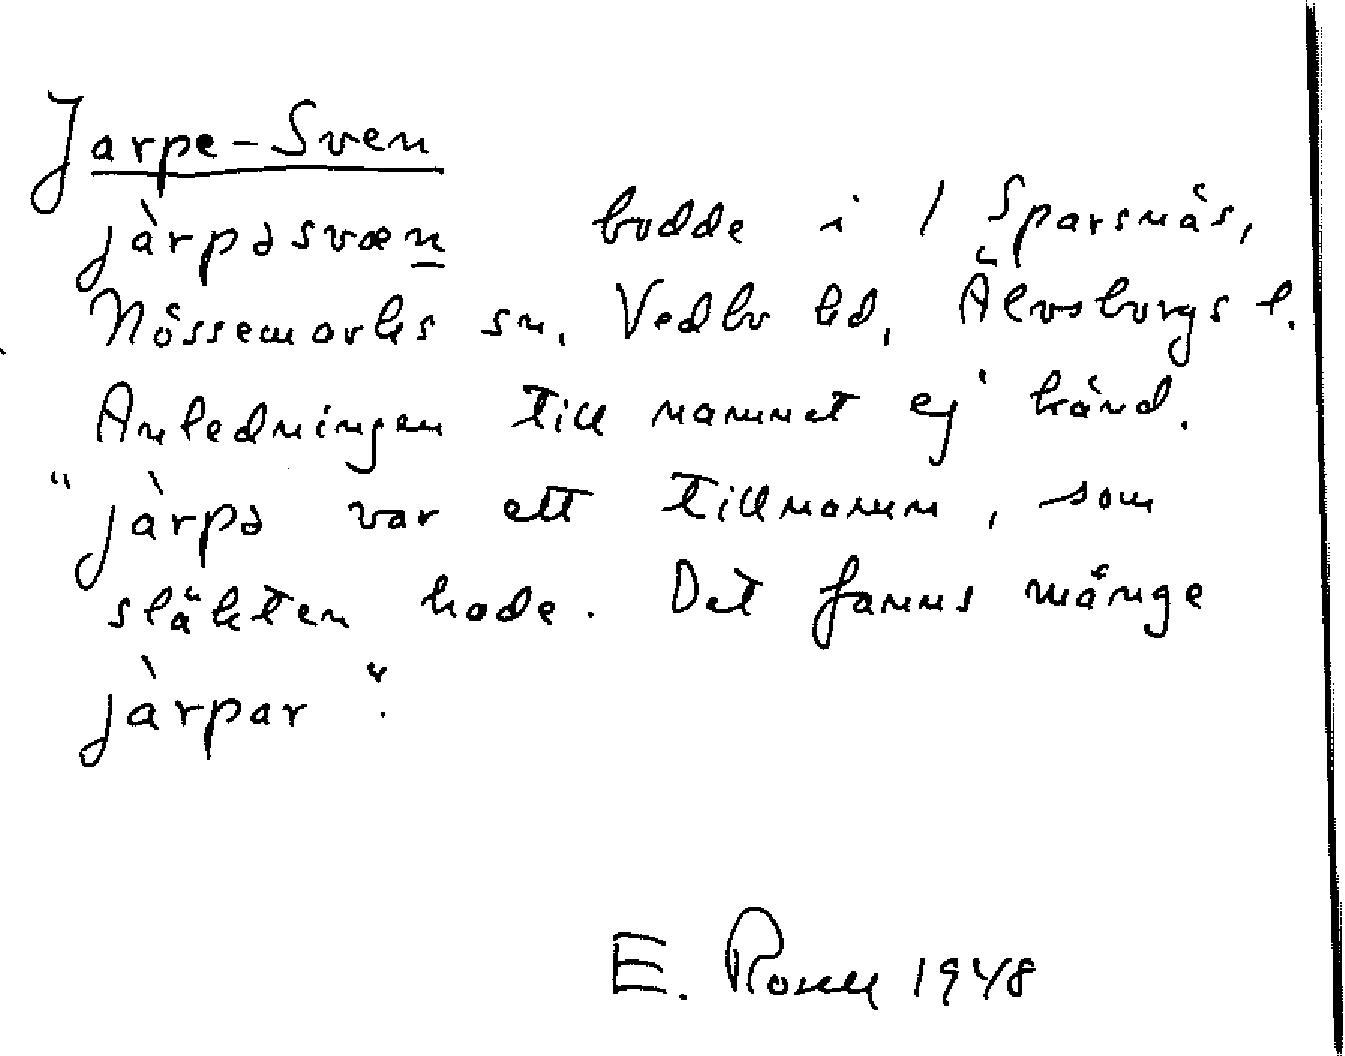 Jarpe-Sven
jàrpəsvæn bodde i 1 Sparsnäs,
Nössemarks sn, Vedbo hd, Älvsborgs l.
Anledningen till namnet ej känd.
"jàrpə var ett tillnamn, som
släkten hade. Det fanns många
jàrpar".
E. 1948